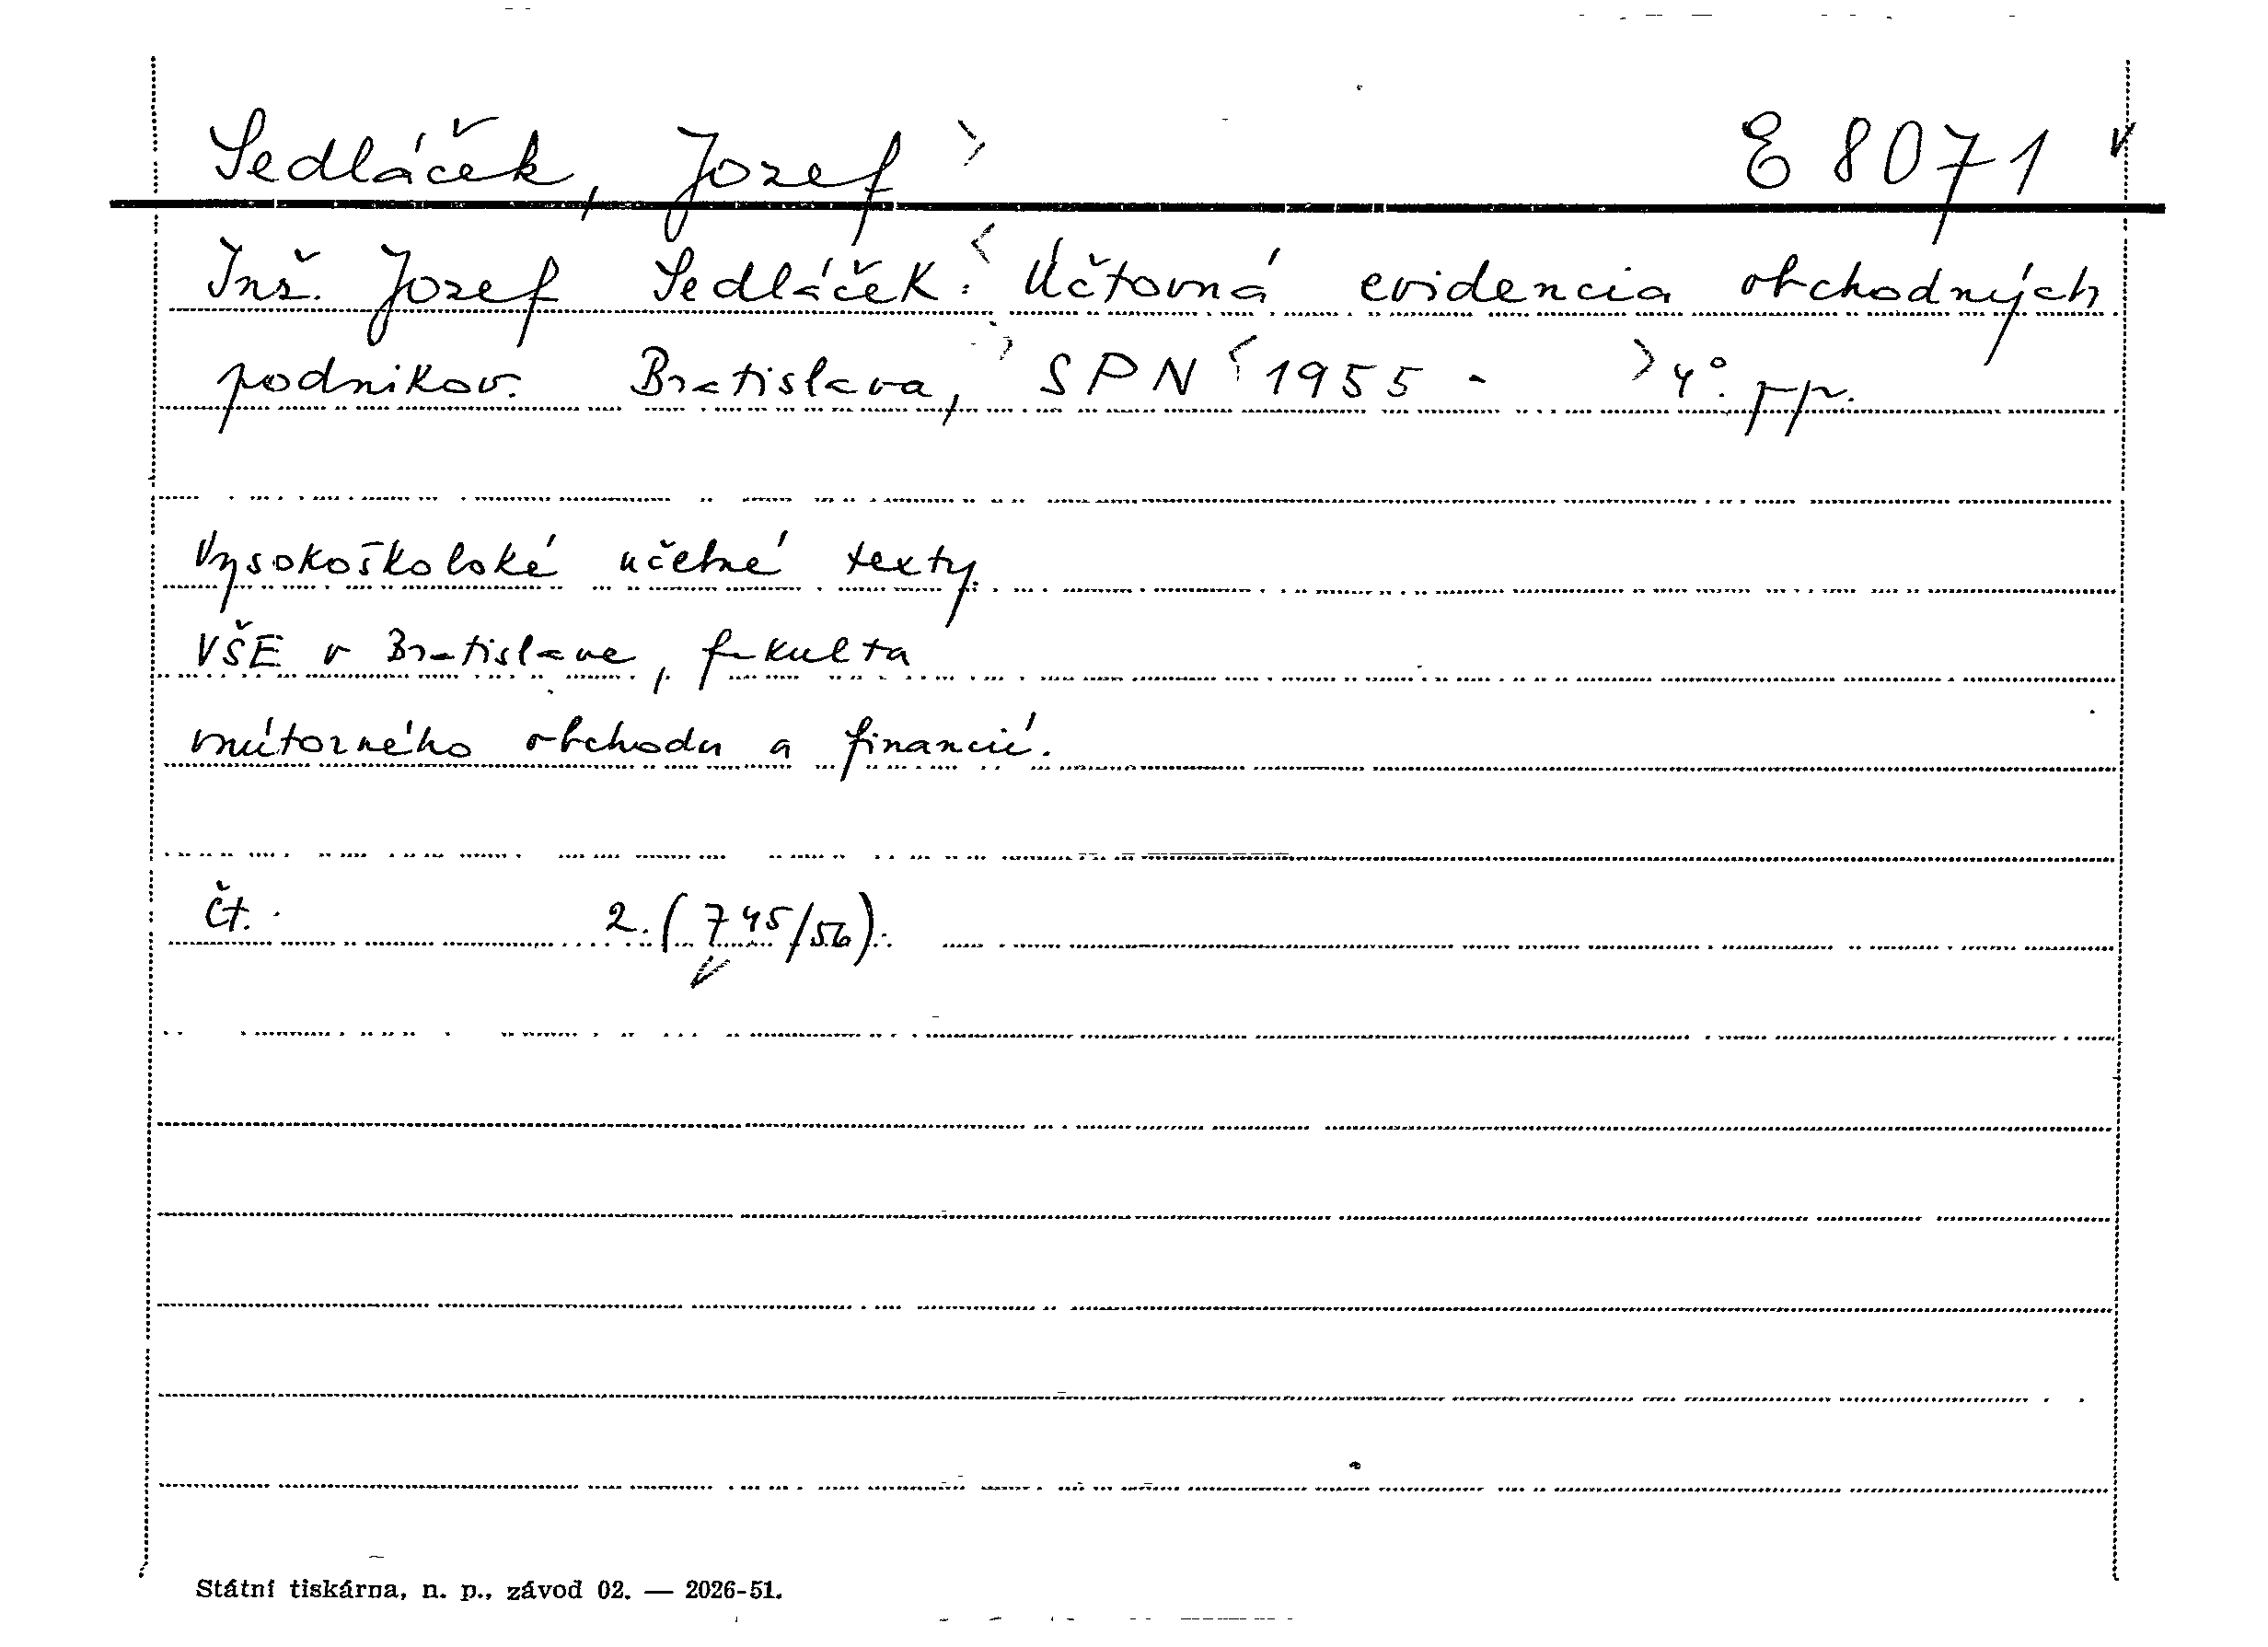 Sedláček, Jozef > E 8071 v
Inž. Jozef Sedláček: < Účtovná evidencia obchodných
podnikov. Bratislava, > SPN < 1955 - > 4°. pp.
Vysokoškolské učebné texty.
VŠE v Bratislave, fakulta
vnútorného obchodu a financií.
Čt. 2. (745/56).
Státní tiskárna, n. p., závod 02. — 2026-51.